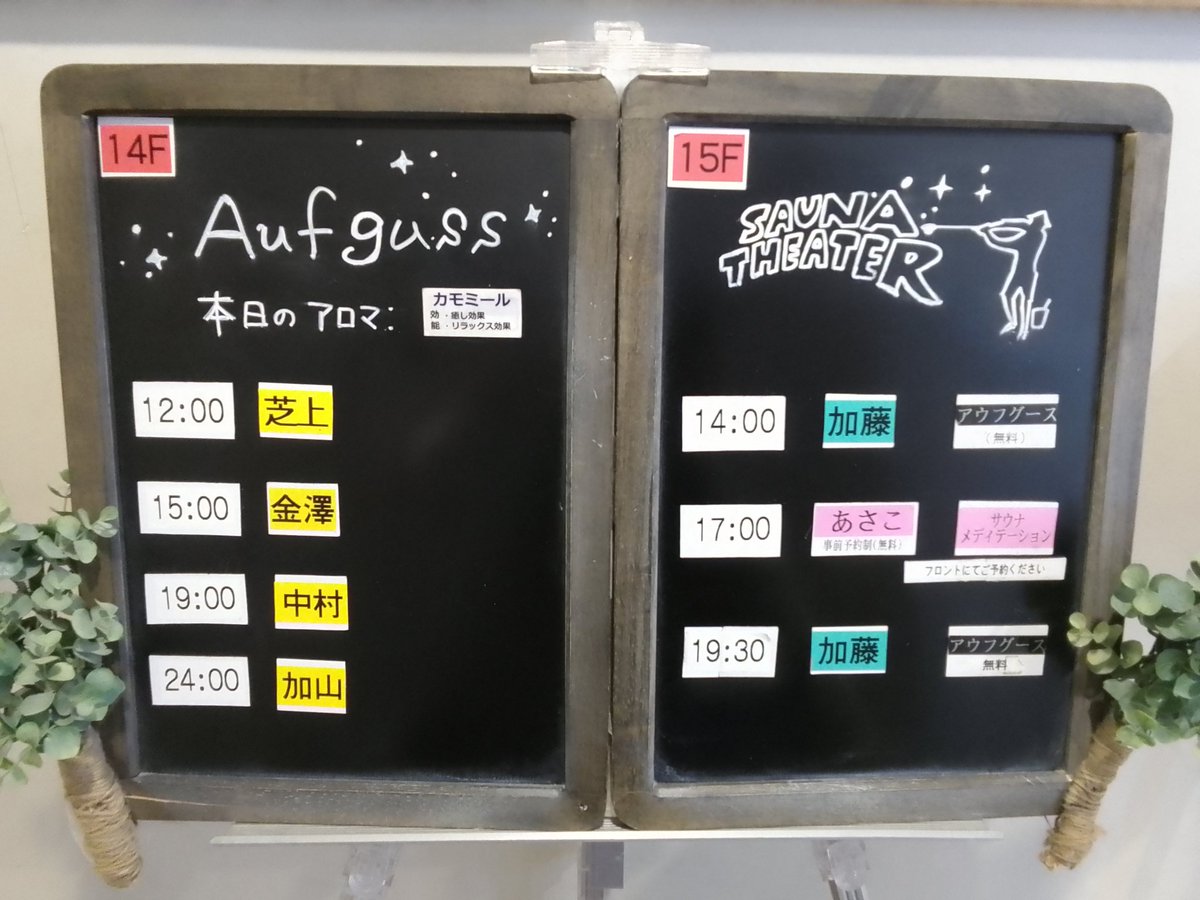 14F
Aufguss
本日のアロマ:
カモミール
効・癒し効果
能・リラックス効果
12:00 芝上
15:00 金澤
19:00 中村
24:00 加山
15F
SAUNA
THEATER
14:00 加藤 アウフグース
(無料)
17:00 あさこ サウナ
事前予約制(無料) メディテーション
フロントにてご予約ください
19:30 加藤 アウフグース
無料